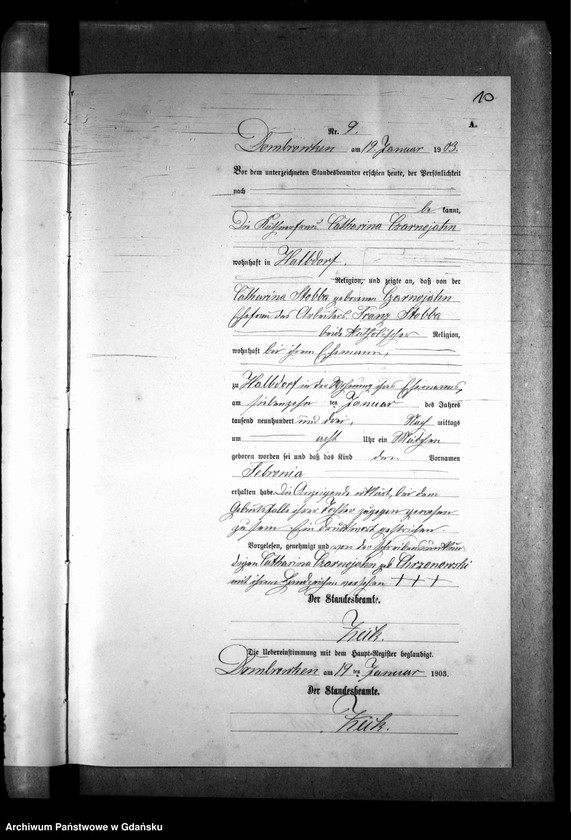 10
A.
Nr. 9.
Dombrowken am 19. Januar 1903.
Vor dem unterzeichneten Standesbeamten erschien heute, der Persönlichkeit
nach
be kannt,
Die Käthnerfrau Catharina Czarnojahn
wohnhaft in Halbdorf.
Religion, und zeigte an, daß von der
Catharina Stobba geborenen Czarnojahn
Ehefrau des Arbeiters Franz Stobba
beide katholischer Religion,
wohnhaft bei ihrem Ehemann,
zu Halbdorf in der Wohnung ihres Ehemannes,
am siebenzehn ten Januar des Jahres
tausend neunhundert und drei, Nach mittags
um acht Uhr ein Mädchen
geboren worden sei und daß das Kind den Vornamen
Febronia
erhalten habe. Die Anzeigende erklärt, bei dem
Geburtsfalle ihrer Tochter zugegen gewesen
zu sein. Ein Druckwort gestrichen.
Vorgelesen, genehmigt und von der schreibensunkun-
digen Catharina Czarnojahn geb. Chrzanowski
mit ihrem Handzeichen versehen +++
Der Standesbeamte.
Zeik.
Die Uebereinstimmung mit dem Haupt-Register beglaubigt.
Dombrowken am 19 ten Januar 1903.
Der Standesbeamte.
Zeik.
Archiwum Państwowe w Gdańsku